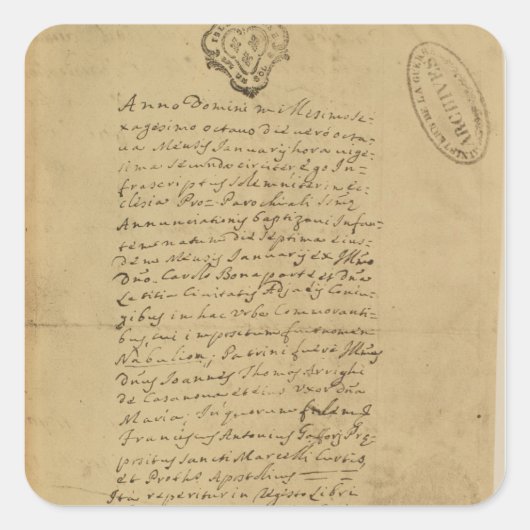 ARCHIVES
DE LA GUERRE
Anno Domini mi Mesimose-
xagesimo octavo die verò octa-
va Mensis Januarij hora vige-
sima secunda circiter ego In-
frascriptus solemniter in ec-
clesia Pro-Parochiali
Annunciationis baptizavi Infan-
tem natum die septima eius-
dem Mensis Januarij ex Illmo
Dno. Carolo Bonaparte et Dna
Letitia Civitatis Adjacij Coniu-
gibus in hac Urbe Commoranti-
bus, cui impositum fuit nomen
Nabulion; Patrini fuere
Joannes Thomas Arrighi
de Casanova et eius uxor dna
Maria; In quorum fidem
Franciscus Antonius Gaffory Pre-
positus Sancti Marcelli Curtis,
et Protho Apostolius
Ità reperitur in registo Libri